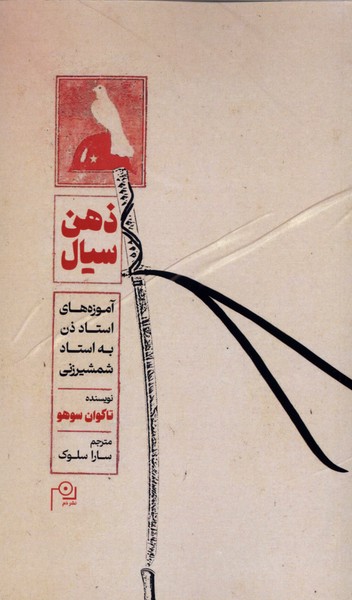 ذهن
سیال
آموزه‌های
استاد ذن
به استاد
شمشیرزنی
نویسنده
تاکوان سوهو
مترجم
سارا سلوک
نشر نم